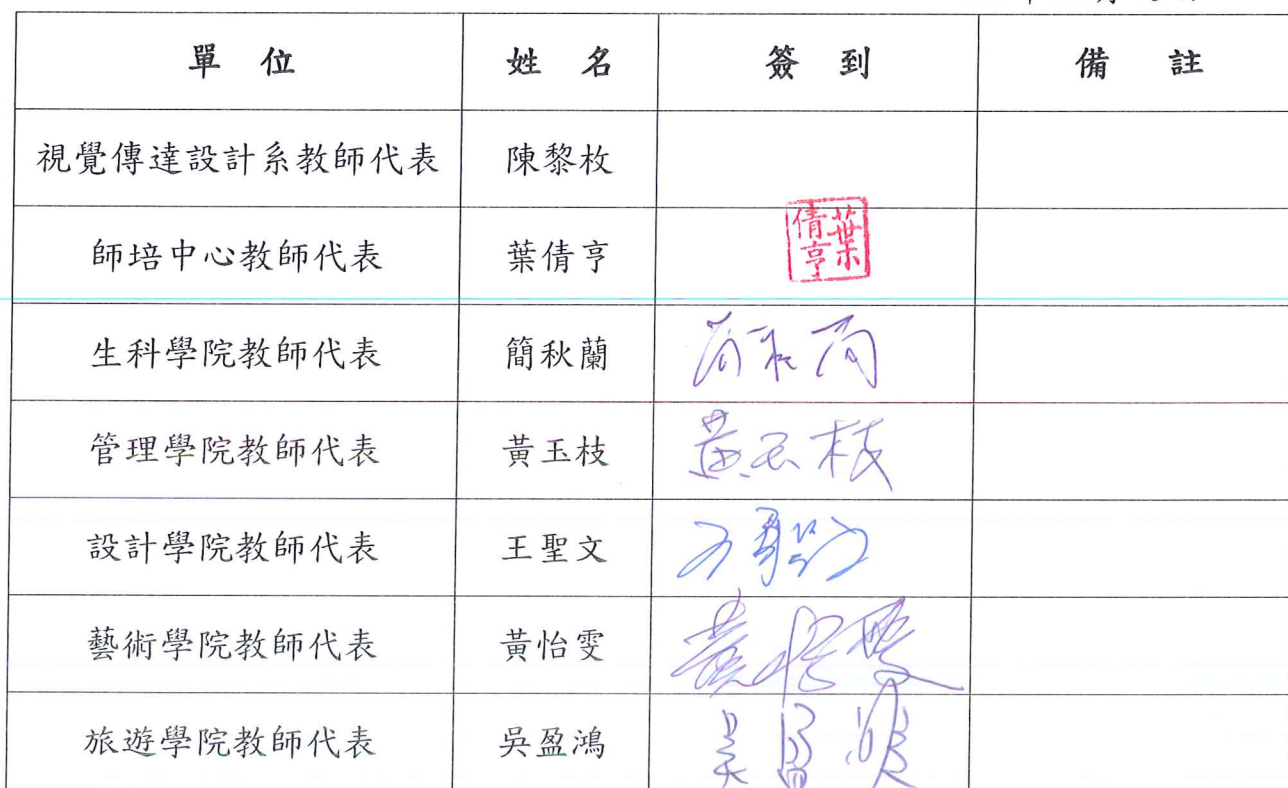 單 位 姓 名 簽 到 備 註
視覺傳達設計系教師代表 陳黎枚
師培中心教師代表 葉倩亨 葉倩亨
生科學院教師代表 簡秋蘭
管理學院教師代表 黃玉枝 黃玉枝
設計學院教師代表 王聖文
藝術學院教師代表 黃怡雯 黃怡雯
旅遊學院教師代表 吳盈鴻